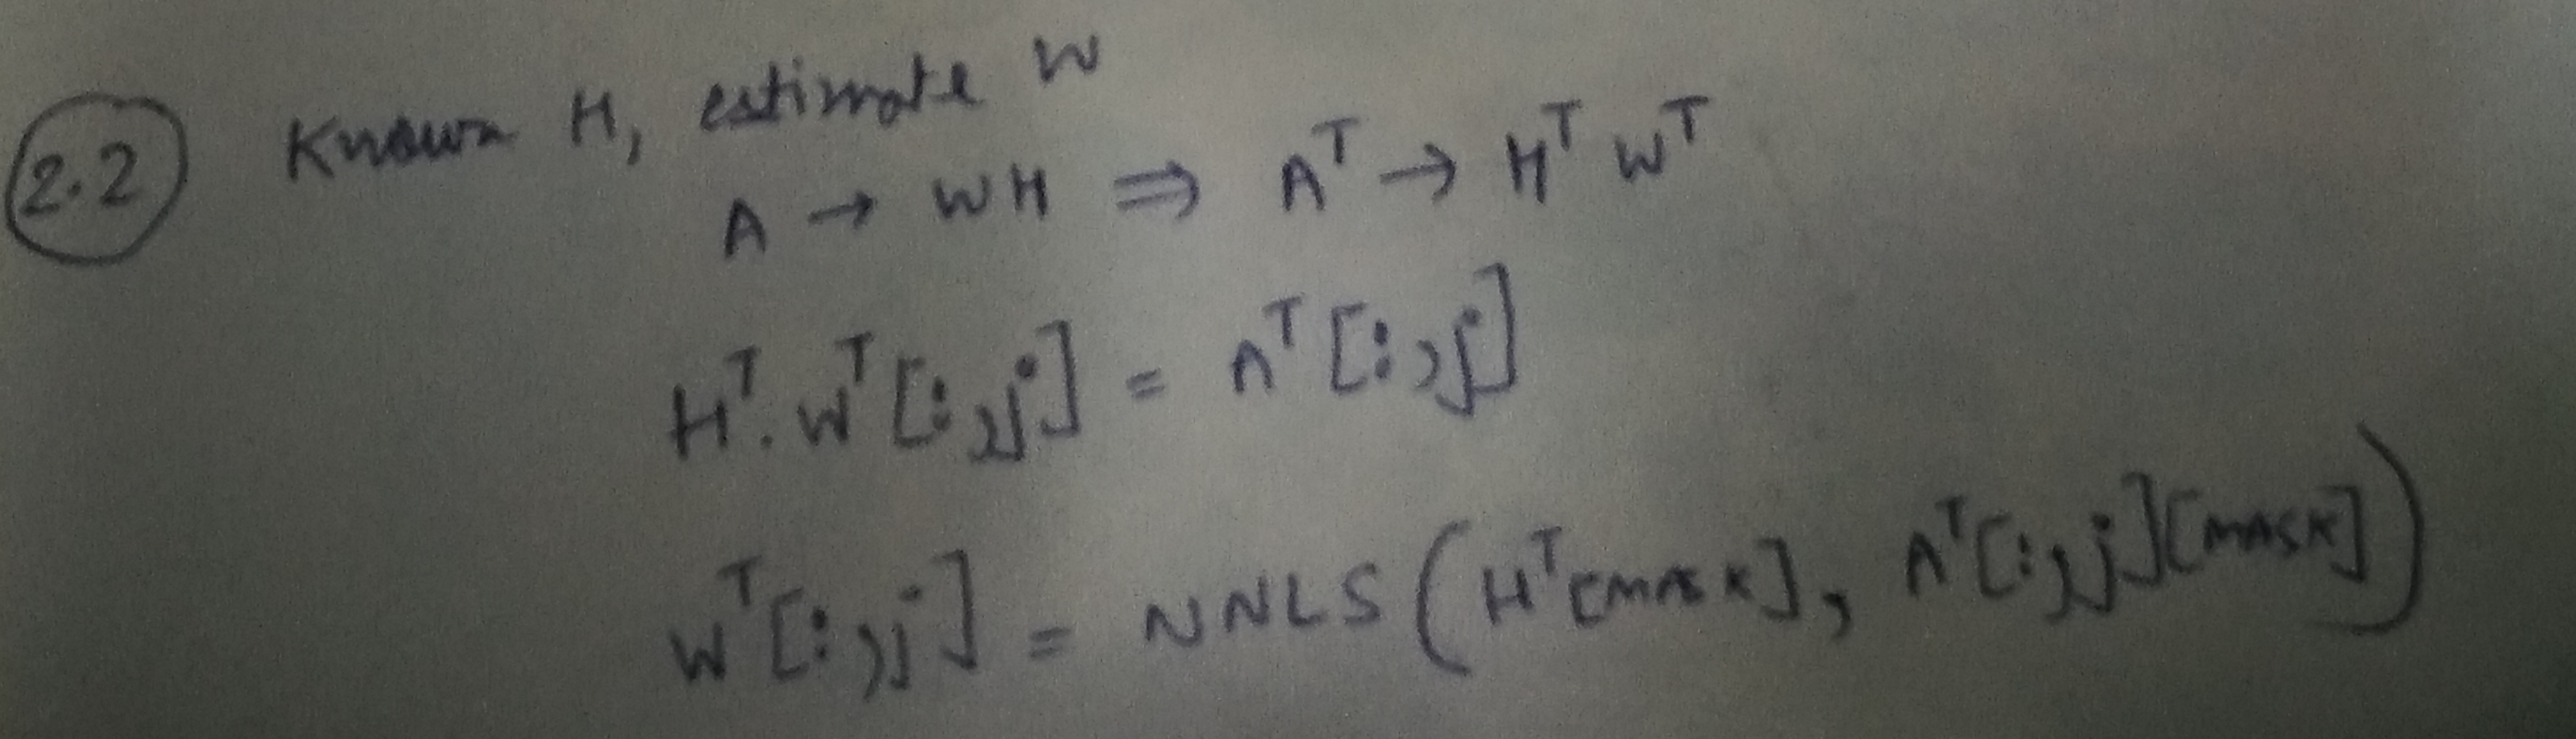 2.2 Known H, estimate W
A → WH ⇒ Aᵀ → Hᵀ Wᵀ
Hᵀ. Wᵀ [:,j] = Aᵀ [:,j]
Wᵀ [:,j] = NNLS (Hᵀ[MASK], Aᵀ[:,j][MASK])